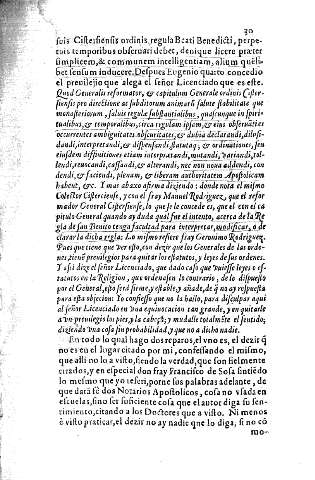 30
suis Cisterſienſis ordinis, regula Beati Benedicti, perpe-
tuis temporibus obſeruari debet, denique licere præter
ſimplicem, & communem intelligentiam, alium quéli-
bet ſenſum inducere. Deſpues Eugenio quarto concedio
el preuilejio que alega el ſeñor Licenciado que es eſte.
Quod Generalis reformator, & capitulum Generale ordinis Ciſter-
ſienſis pro directione ac ſubditorum animarũ ſalute
monaſteriorum, ſaluis regulæ ſubſtantialibus, quaſcunque in ſpiri-
tualibus, & temporalibus, circa regulam ipſam, & eius obſeruātias
occurrentes ambiguitates obſcuritates, & dubia declarandi,
landi, interpretandi, & diſpenſandi ſtatutaq;, & ordinationes, ſeu
eiuſdem diffinitiones etiam interpretandi, mutandi, variandi, tol-
lendi, reuocandi, caſſandi, & alterandi, nec non noua addendi, con-
dendi, & faciendi, plenam, & liberam authoritatem Apoſtolicam
habeat, &c. I mas abaxo afirma diziendo: donde nota el miſmo
Colector Ciſtercienſe, y cõ el fray Manuel Rodriguez, que el refor
mador General Ciſtercienſe, lo que ſe le concede es, que el cõ el ca
pitulo General quando ay duda qual fue el intento, acerca de la Re
gla de ſan Benito tenga facultad para interpretar, modificar, o de
clarar la dicha regla: Lo miſmo refiere fray Geronimo Rodriguez.
Pues que tiene que ver eſto, con dezir que los Generales de las orde-
nes tienē preuilegios para quitar los eſtatutos, y leyes de ſus ordenes.
Y aſsi dize el ſeñor Licenciado, que dado caſo que vuieſſe leyes o eſ-
tatutos en la Religion, que ordenaſſen lo contrario, de lo diſpueſto
por el General, eſto ſerà firme, y eſtable y añade, de q̃ no ay reſpueſta
para eſta objecion: Yo confieſſo que no la hallo, para diſculpar aqui
al ſeñor Licenciado en vna equiuocacion tan grande, y en quitarle
a vn preuilegio los pies, y la cabeça; y mudalle totalmēte el ſentido;
diziendo vna coſa ſin probabilidad, y que no a dicho nadie.
En todo lo qual hago dos reparos, el vno es, el dezir q̃
no es en el lugar citado por mi, confeſſando el miſmo,
que alli no lo a viſto, ſiendo la verdad, que ſon fielmente
citados, y en eſpecial don fray Franciſco de Soſa ſintiēdo
lo meſmo que yo referi, porne ſus palabras adelante, de
que darà fé dos Notarios Apoſtolicos, coſa no vſada en
eſcuelas, ſino ſer ſuficiente coſa que el autor diga ſu ſen-
timiento, citando a los Doctores que a viſto. Ni menos
è viſto praticar, el dezir no ay nadie que lo diga, ſi no cõ
mo-